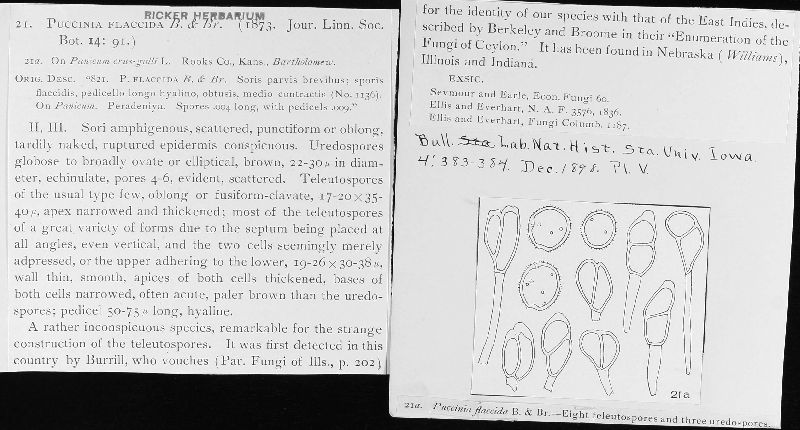 RICKER HERBARIUM
21. PUCCINIA FLACCIDA B. & Br. (1873. Jour. Linn. Soc.
Bot. 14: 91.)
21a. On Panicum crus-galli L. Rooks Co., Kans., Bartholomew.
ORIG. DESC. "821. P. FLACCIDA B. & Br. Soris parvis brevibus; sporis
flaccidis, pedicello longo hyalino, obtusis, medio contractis (No. 1136).
On Panicum. Peradeniya. Spores .004 long, with pedicels .009."
II, III. Sori amphigenous, scattered, punctiform or oblong,
tardily naked, ruptured epidermis conspicuous. Uredospores
globose to broadly ovate or elliptical, brown, 22-30µ in diam-
eter, echinulate, pores 4-6, evident, scattered. Teleutospores
of the usual type few, oblong or fusiform-clavate, 17-20×35-
40µ, apex narrowed and thickened; most of the teleutospores
of a great variety of forms due to the septum being placed at
all angles, even vertical, and the two cells seemingly merely
adpressed, or the upper adhering to the lower, 19-26×30-38µ,
wall thin, smooth, apices of both cells thickened, bases of
both cells narrowed, often acute, paler brown than the uredo-
spores; pedicel 50-75µ long, hyaline.
A rather inconspicuous species, remarkable for the strange
construction of the teleutospores. It was first detected in this
country by Burrill, who vouches (Par. Fungi of Ills., p. 202)
for the identity of our species with that of the East Indies, de-
scribed by Berkeley and Broome in their "Enumeration of the
Fungi of Ceylon." It has been found in Nebraska (Williams),
Illinois and Indiana.
EXSIC.
Seymour and Earle, Econ. Fungi 60.
Ellis and Everhart, N. A. F. 3576, 1836.
Ellis and Everhart, Fungi Columb. 1187.
Bull. Sta. Lab. Nat. Hist. Sta. Univ. Iowa.
4: 383-384. Dec. 1898. Pl. V.
21a
21a. Puccinia flaccida B. & Br.—Eight teleutospores and three uredospores.